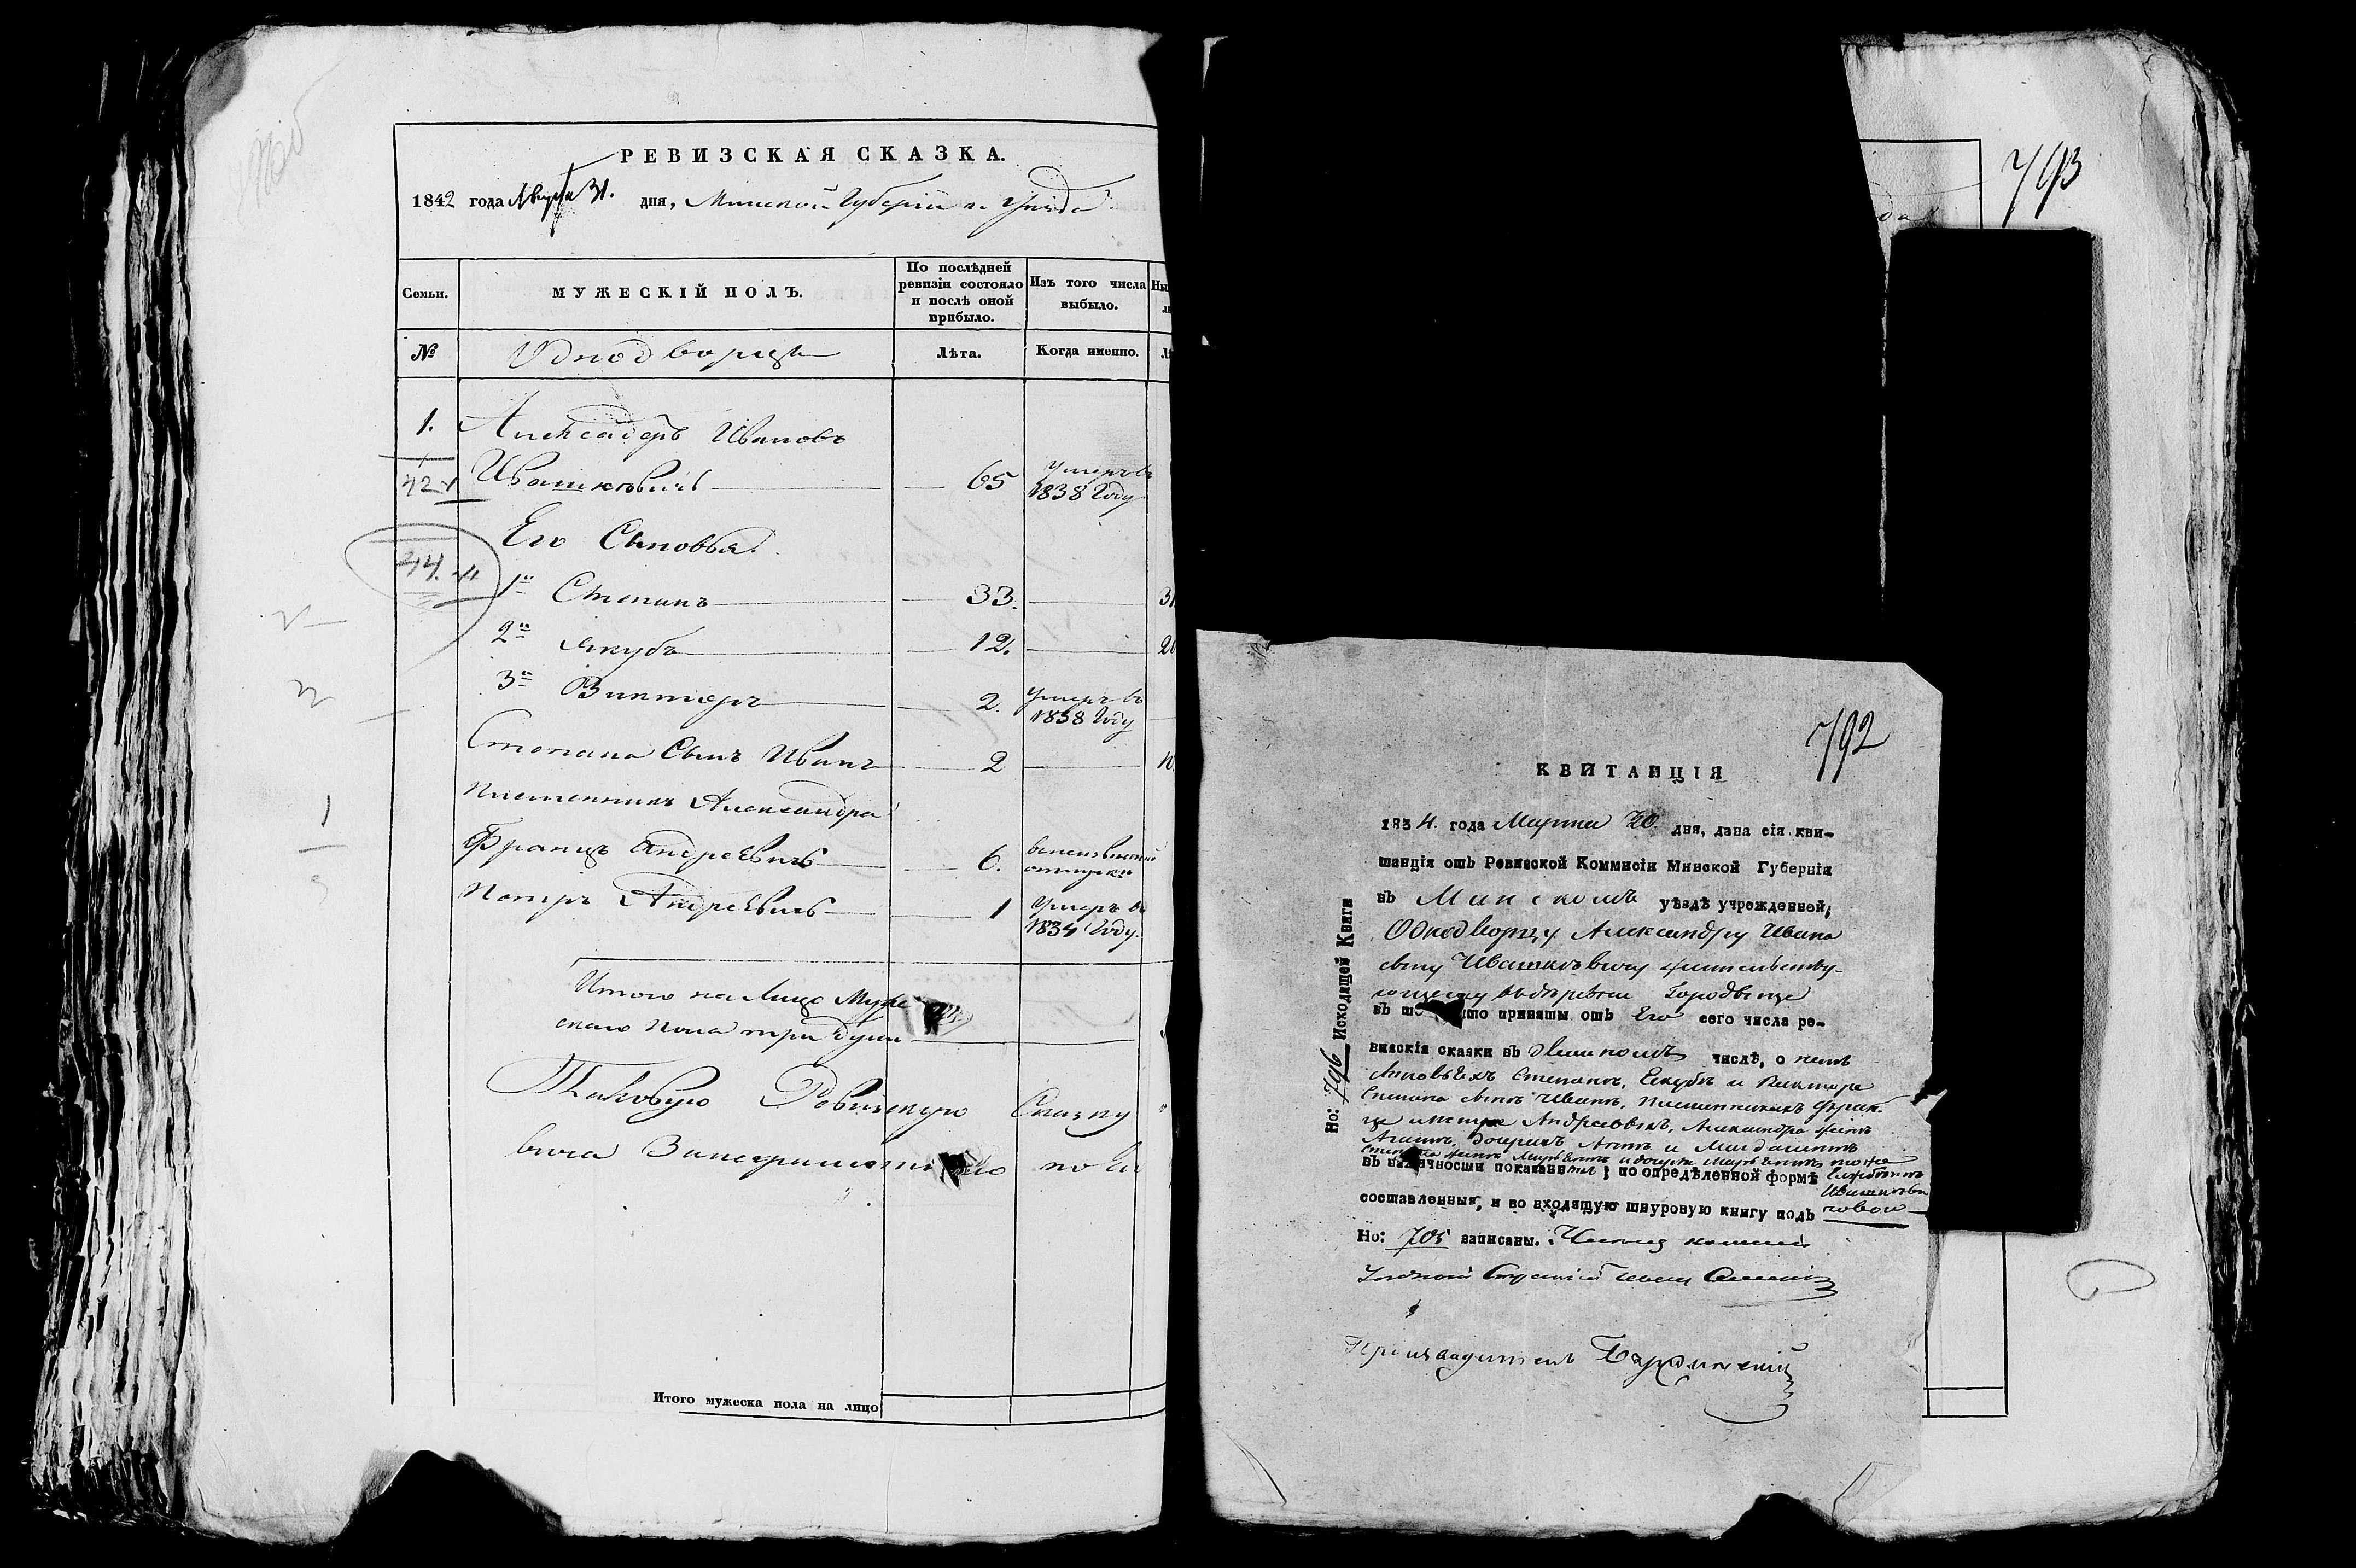 РЕВИЗСКАЯ СКАЗКА.
1842 года Августа 31. дня, Минской Губернии и Уезда
Семьи.
МУЖЕСКІЙ ПОЛЪ.
По послѣдней ревизіи состояло и послѣ оной прибыло.
Изъ того числа выбыло.
№
Однодворцы
Лѣта.
Когда именно.
1.
Александръ Ивановъ
42
Ивашкѣвичь 65 Умеръ въ 1838 Году
Его Сыновья.
44.
1й Степанъ 33.
2й Якубъ 12.
3й Викторъ 2. Умеръ въ 1838 Году
Степана Сынъ Иванъ 2
Племенникъ Александра
Францъ Андреевичь 6.
Петръ Андреевичь 1 Умеръ въ 1834 Году.
Итого на Лицо Муже
скаго пола три души
Таковую Ревизскую Сказку
вича
Итого мужеска пола на лицо
793
792
КВИТАНЦІЯ
1834. года Марта 20. дня, дана сія кви-
танція отъ Ревизской Коммисіи Минской Губерніи
въ Минскомъ уѣздѣ учрежденней,
Однодворцу Александру Ивана
сыну Ивашкѣвичу жительству-
ющему въ деревни Городвище
въ то что приняты отъ Его сего числа ре-
визскія сказки въ двойномъ числѣ, о немъ
сыновьехъ Степанъ, Якубъ и Викторе
Степана сынъ Иванъ, племенникахъ Фран-
це и Петре Андреевыхъ, Александра женъ
дочерехъ Аннъ и Магдаленъ
въ наличности показан по опредѣленной формѣ
составленныя, и во входящую шнуровую книгу подъ
Но: 705 записаны. Членъ
Производитель
Но: 796 Исходящей Книги